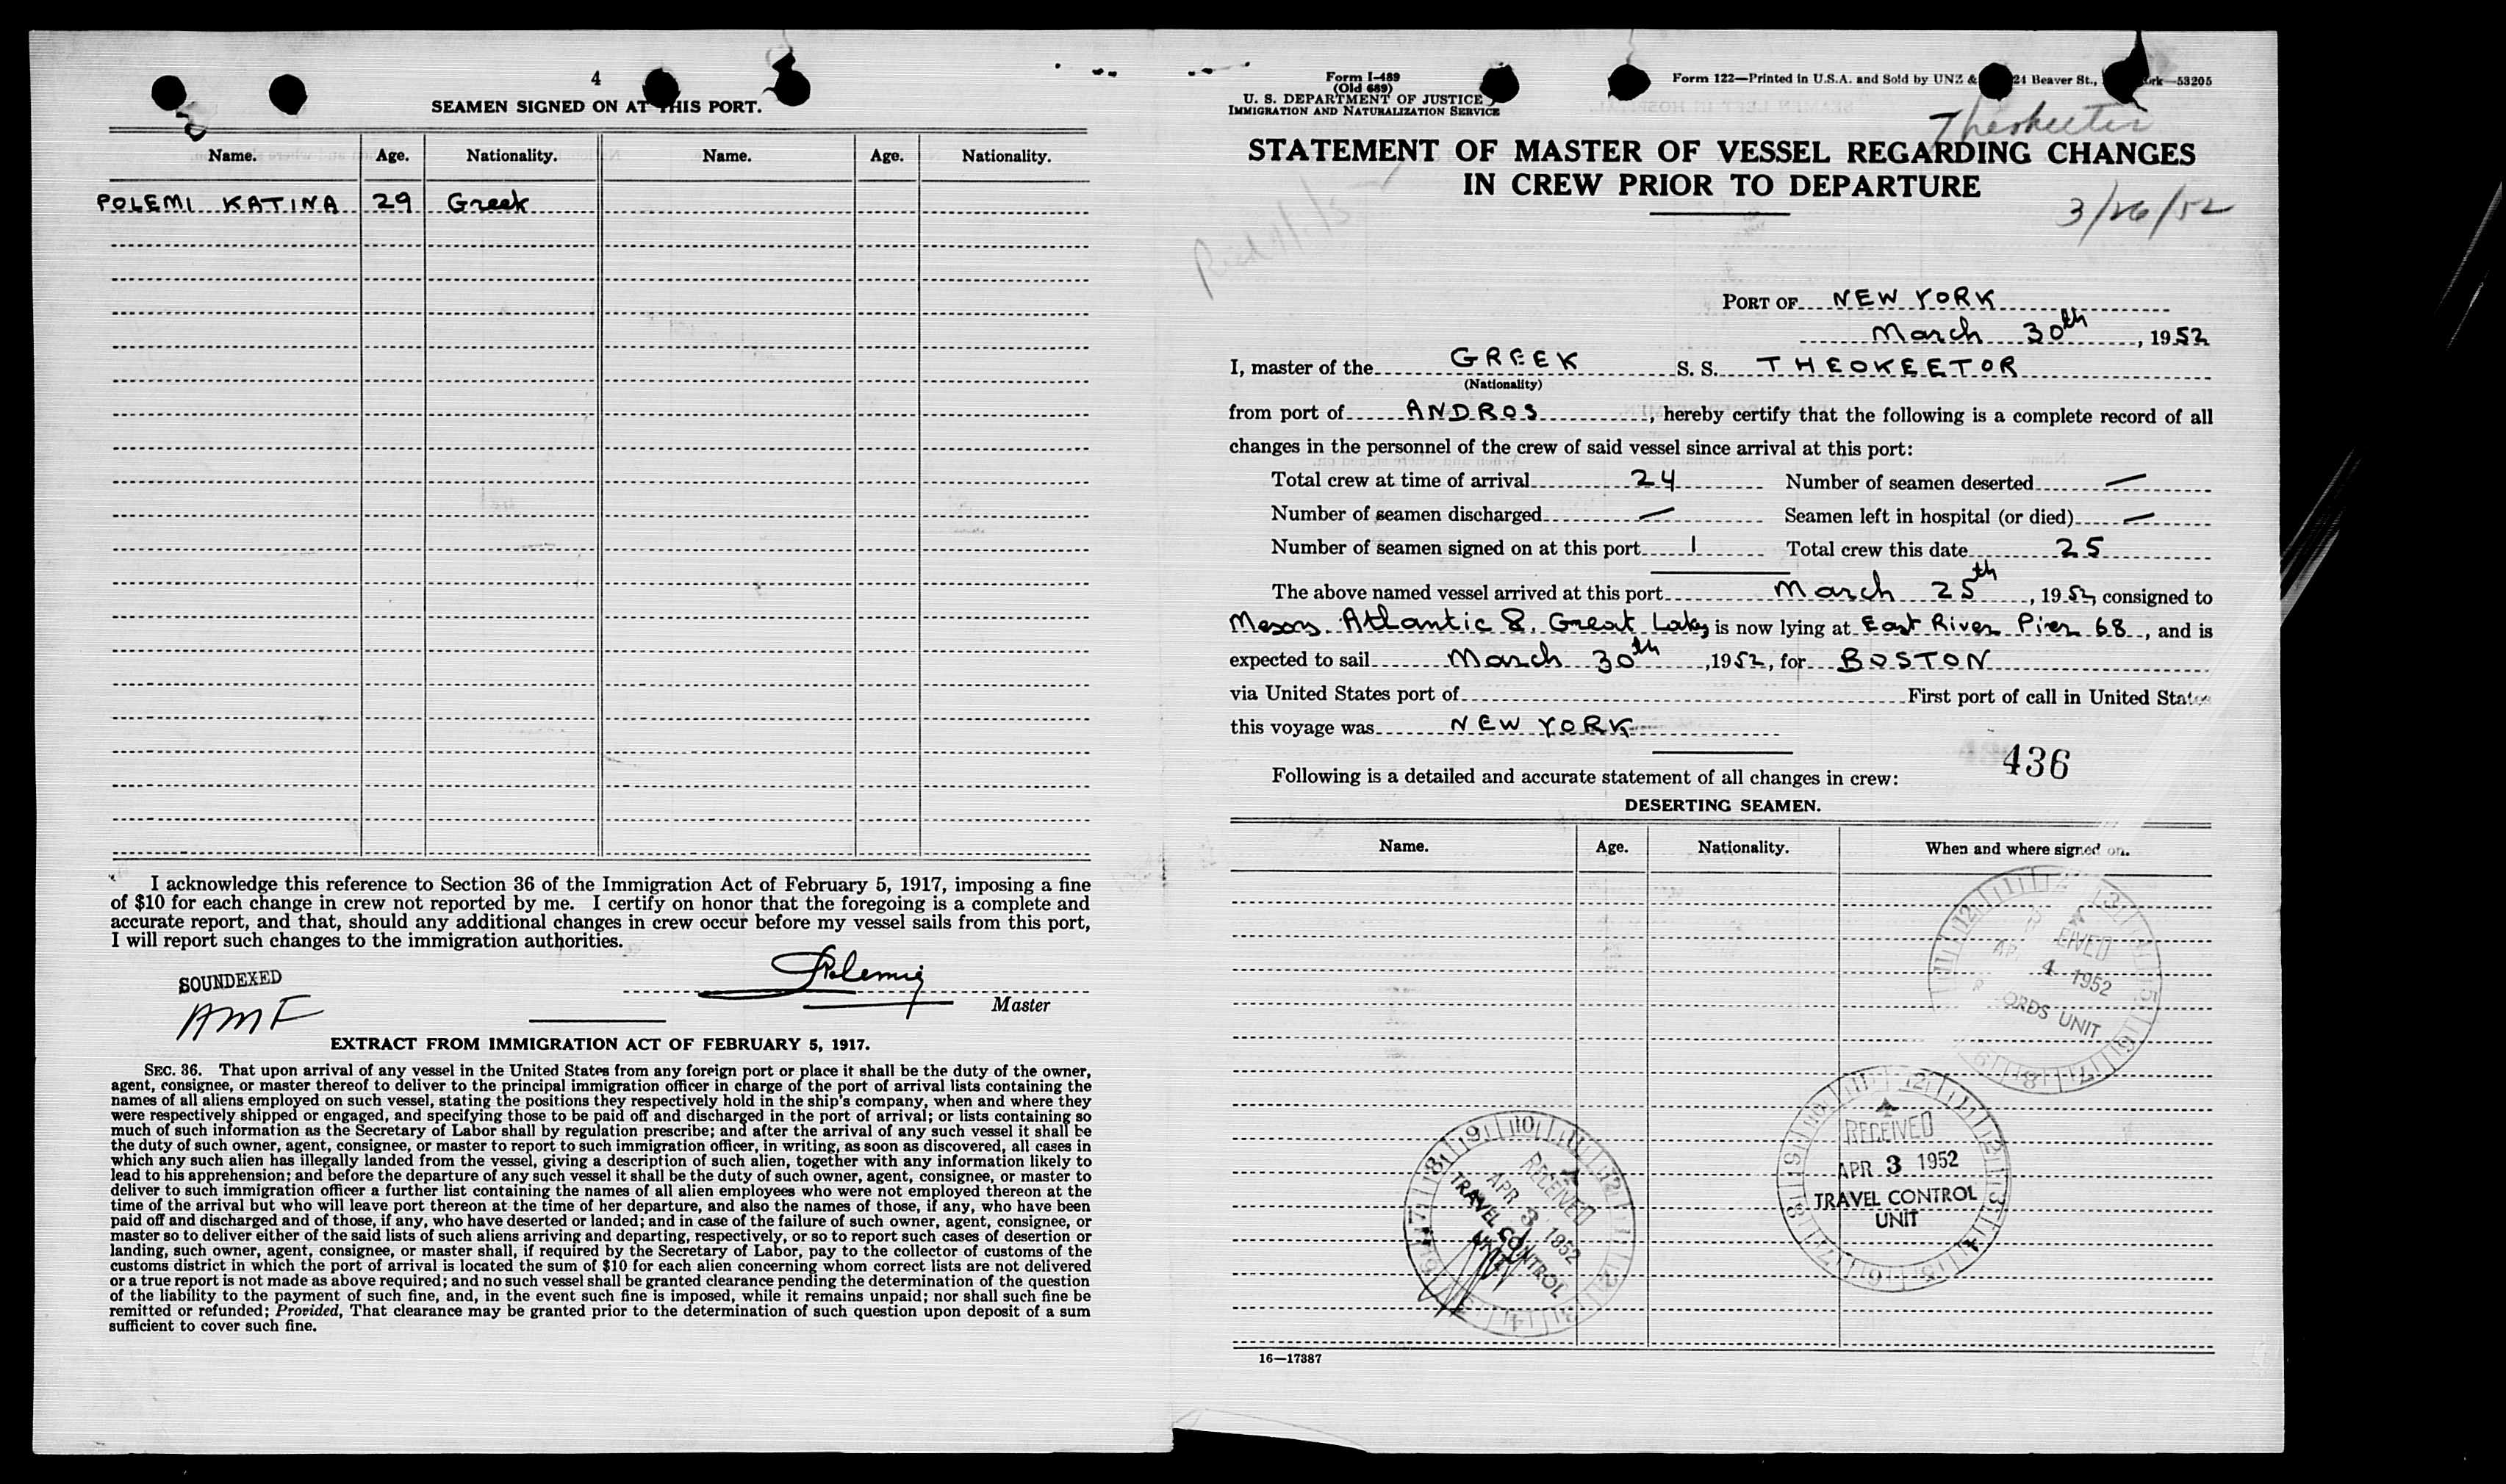 4
SEAMEN SIGNED ON AT THIS PORT.
Name. Age. Nationality. Name. Age. Nationality.
POLEMI KATINA 29 Greek
I acknowledge this reference to Section 36 of the Immigration Act of February 5, 1917, imposing a fine
of $10 for each change in crew not reported by me. I certify on honor that the foregoing is a complete and
accurate report, and that, should any additional changes in crew occur before my vessel sails from this port,
I will report such changes to the immigration authorities.
SOUNDEXED
AMF
Polemis
Master
EXTRACT FROM IMMIGRATION ACT OF FEBRUARY 5, 1917.
SEC. 36. That upon arrival of any vessel in the United States from any foreign port or place it shall be the duty of the owner,
agent, consignee, or master thereof to deliver to the principal immigration officer in charge of the port of arrival lists containing the
names of all aliens employed on such vessel, stating the positions they respectively hold in the ship's company, when and where they
were respectively shipped or engaged, and specifying those to be paid off and discharged in the port of arrival; or lists containing so
much of such information as the Secretary of Labor shall by regulation prescribe; and after the arrival of any such vessel it shall be
the duty of such owner, agent, consignee, or master to report to such immigration officer, in writing, as soon as discovered, all cases in
which any such alien has illegally landed from the vessel, giving a description of such alien, together with any information likely to
lead to his apprehension; and before the departure of any such vessel it shall be the duty of such owner, agent, consignee, or master to
deliver to such immigration officer a further list containing the names of all alien employees who were not employed thereon at the
time of the arrival but who will leave port thereon at the time of her departure, and also the names of those, if any, who have been
paid off and discharged and of those, if any, who have deserted or landed; and in case of the failure of such owner, agent, consignee, or
master so to deliver either of the said lists of such aliens arriving and departing, respectively, or so to report such cases of desertion or
landing, such owner, agent, consignee, or master shall, if required by the Secretary of Labor, pay to the collector of customs of the
customs district in which the port of arrival is located the sum of $10 for each alien concerning whom correct lists are not delivered
or a true report is not made as above required; and no such vessel shall be granted clearance pending the determination of the question
of the liability to the payment of such fine, and, in the event such fine is imposed, while it remains unpaid; nor shall such fine be
remitted or refunded; Provided, That clearance may be granted prior to the determination of such question upon deposit of a sum
sufficient to cover such fine.
Form I-489
(Old 689)
U. S. DEPARTMENT OF JUSTICE
IMMIGRATION AND NATURALIZATION SERVICE
Form 122—Printed in U.S.A. and Sold by UNZ & 24 Beaver St., 53205
Theokeetor
STATEMENT OF MASTER OF VESSEL REGARDING CHANGES
IN CREW PRIOR TO DEPARTURE
3/26/52
PORT OF NEW YORK
March 30th, 1952
I, master of the GREEK S. S. THEOKEETOR
(Nationality)
from port of ANDROS, hereby certify that the following is a complete record of all
changes in the personnel of the crew of said vessel since arrival at this port:
Total crew at time of arrival 24 Number of seamen deserted —
Number of seamen discharged — Seamen left in hospital (or died) —
Number of seamen signed on at this port 1 Total crew this date 25
The above named vessel arrived at this port March 25th, 1952, consigned to
Messrs. Atlantic & Great Lakes is now lying at East River Pier 68, and is
expected to sail March 30th, 1952, for BOSTON
via United States port of First port of call in United States
this voyage was NEW YORK
436
Following is a detailed and accurate statement of all changes in crew:
DESERTING SEAMEN.
Name. Age. Nationality. When and where signed on.
4 1952
UNIT
RECEIVED
APR 3 1952
TRAVEL CONTROL
UNIT
RECEIVED
APR 3 1952
TRAVEL CONTROL
UNIT
16—17387